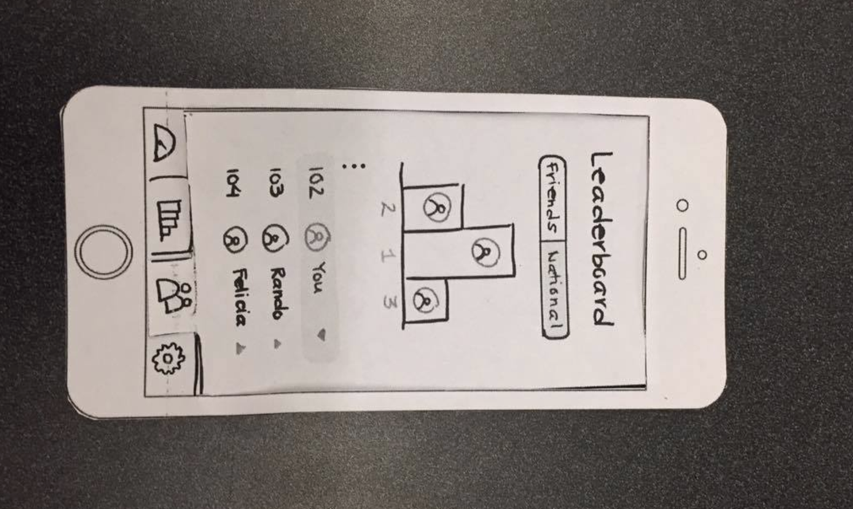 Leaderboard
Friends National
2 1 3
102 You
103 Rando
104 Felicia